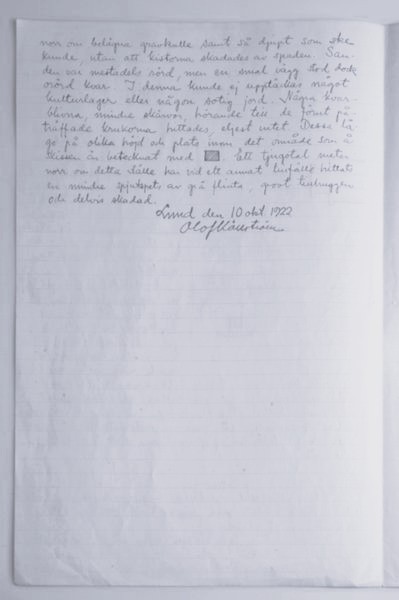 norr om belägna gravkulle samt så djupt som ske
kunde, utan att kistorna skadades av spaden. San-
den var mestadels rörd, men en smal vägg stod dock
orörd kvar. I denna kunde ej upptäckas något
kulturlager eller någon sotig jord. Några kvar-
blivna, mindre skärvor, hörande till de förut på-
träffade krukorna hittades, eljest intet. Dessa lå-
go på olika höjd och plats inom det område som å
skissen är betecknat med . Ett tjugotal meter
norr om detta ställe har vid ett annat tillfälle hittats
en mindre spjutspets av grå flinta, grovt tillhuggen
och delvis skadad.
Lund den 10 okt. 1922
Olof Källström